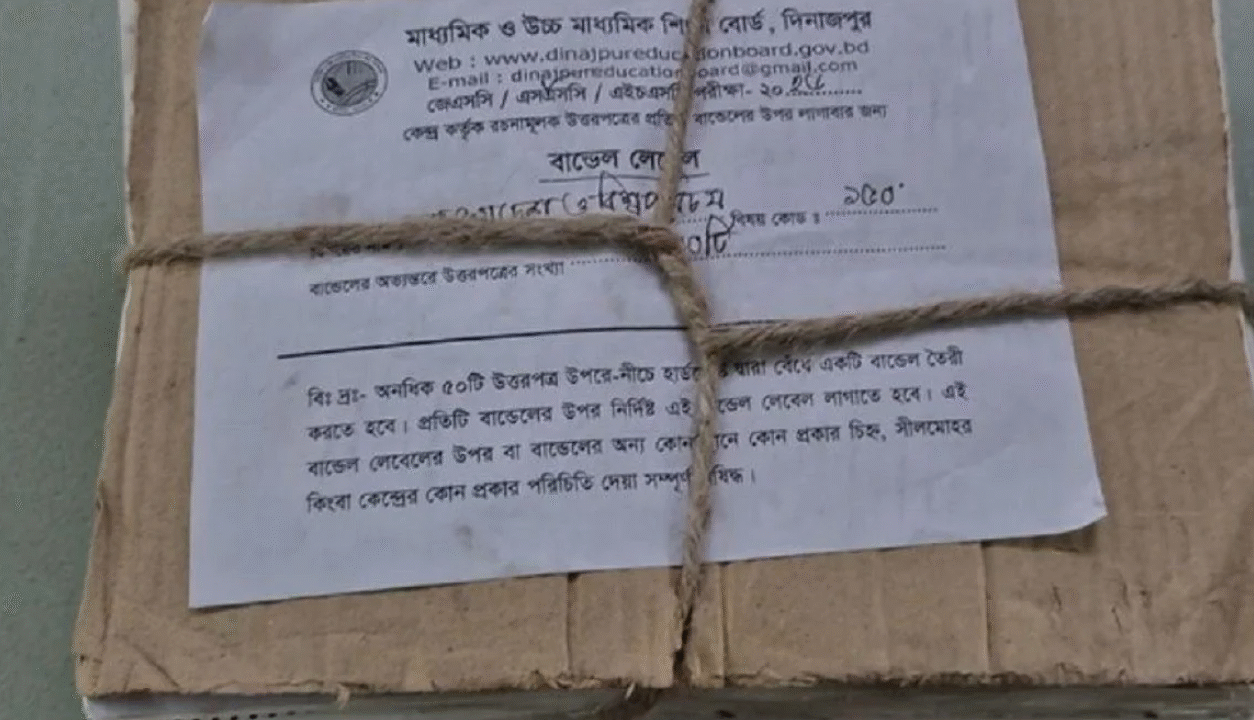 মাধ্যমিক ও উচ্চ মাধ্যমিক বোর্ড, দিনাজপুর
Web : www.dinajpureducationboard.gov.bd
E-mail : dinajpureducationboard@gmail.com
জেএসসি / এসএসসি / এইচএসসি পরীক্ষা- ২০
কেন্দ্র কর্তৃক রচনামূলক উত্তরপত্রের প্রতিটি বান্ডেলের উপর লাগাবার জন্য
বান্ডেল লেবেল
ও বিশ্বপরিচয় বিষয় কোড : ১৫০
বান্ডেলের অভ্যন্তরে উত্তরপত্রের সংখ্যা
বিঃ দ্রঃ- অনধিক ৫০টি উত্তরপত্র উপরে-নীচে দ্বারা বেঁধে একটি বান্ডেল তৈরী
করতে হবে। প্রতিটি বান্ডেলের উপর নির্দিষ্ট এই বান্ডেল লেবেল লাগাতে হবে। এই
বান্ডেল লেবেলের উপর বা বান্ডেলের অন্য কোন কোন প্রকার চিহ্ন, সীলমোহর
কিংবা কেন্দ্রের কোন প্রকার পরিচিতি দেয়া সম্পূর্ণ নিষিদ্ধ।